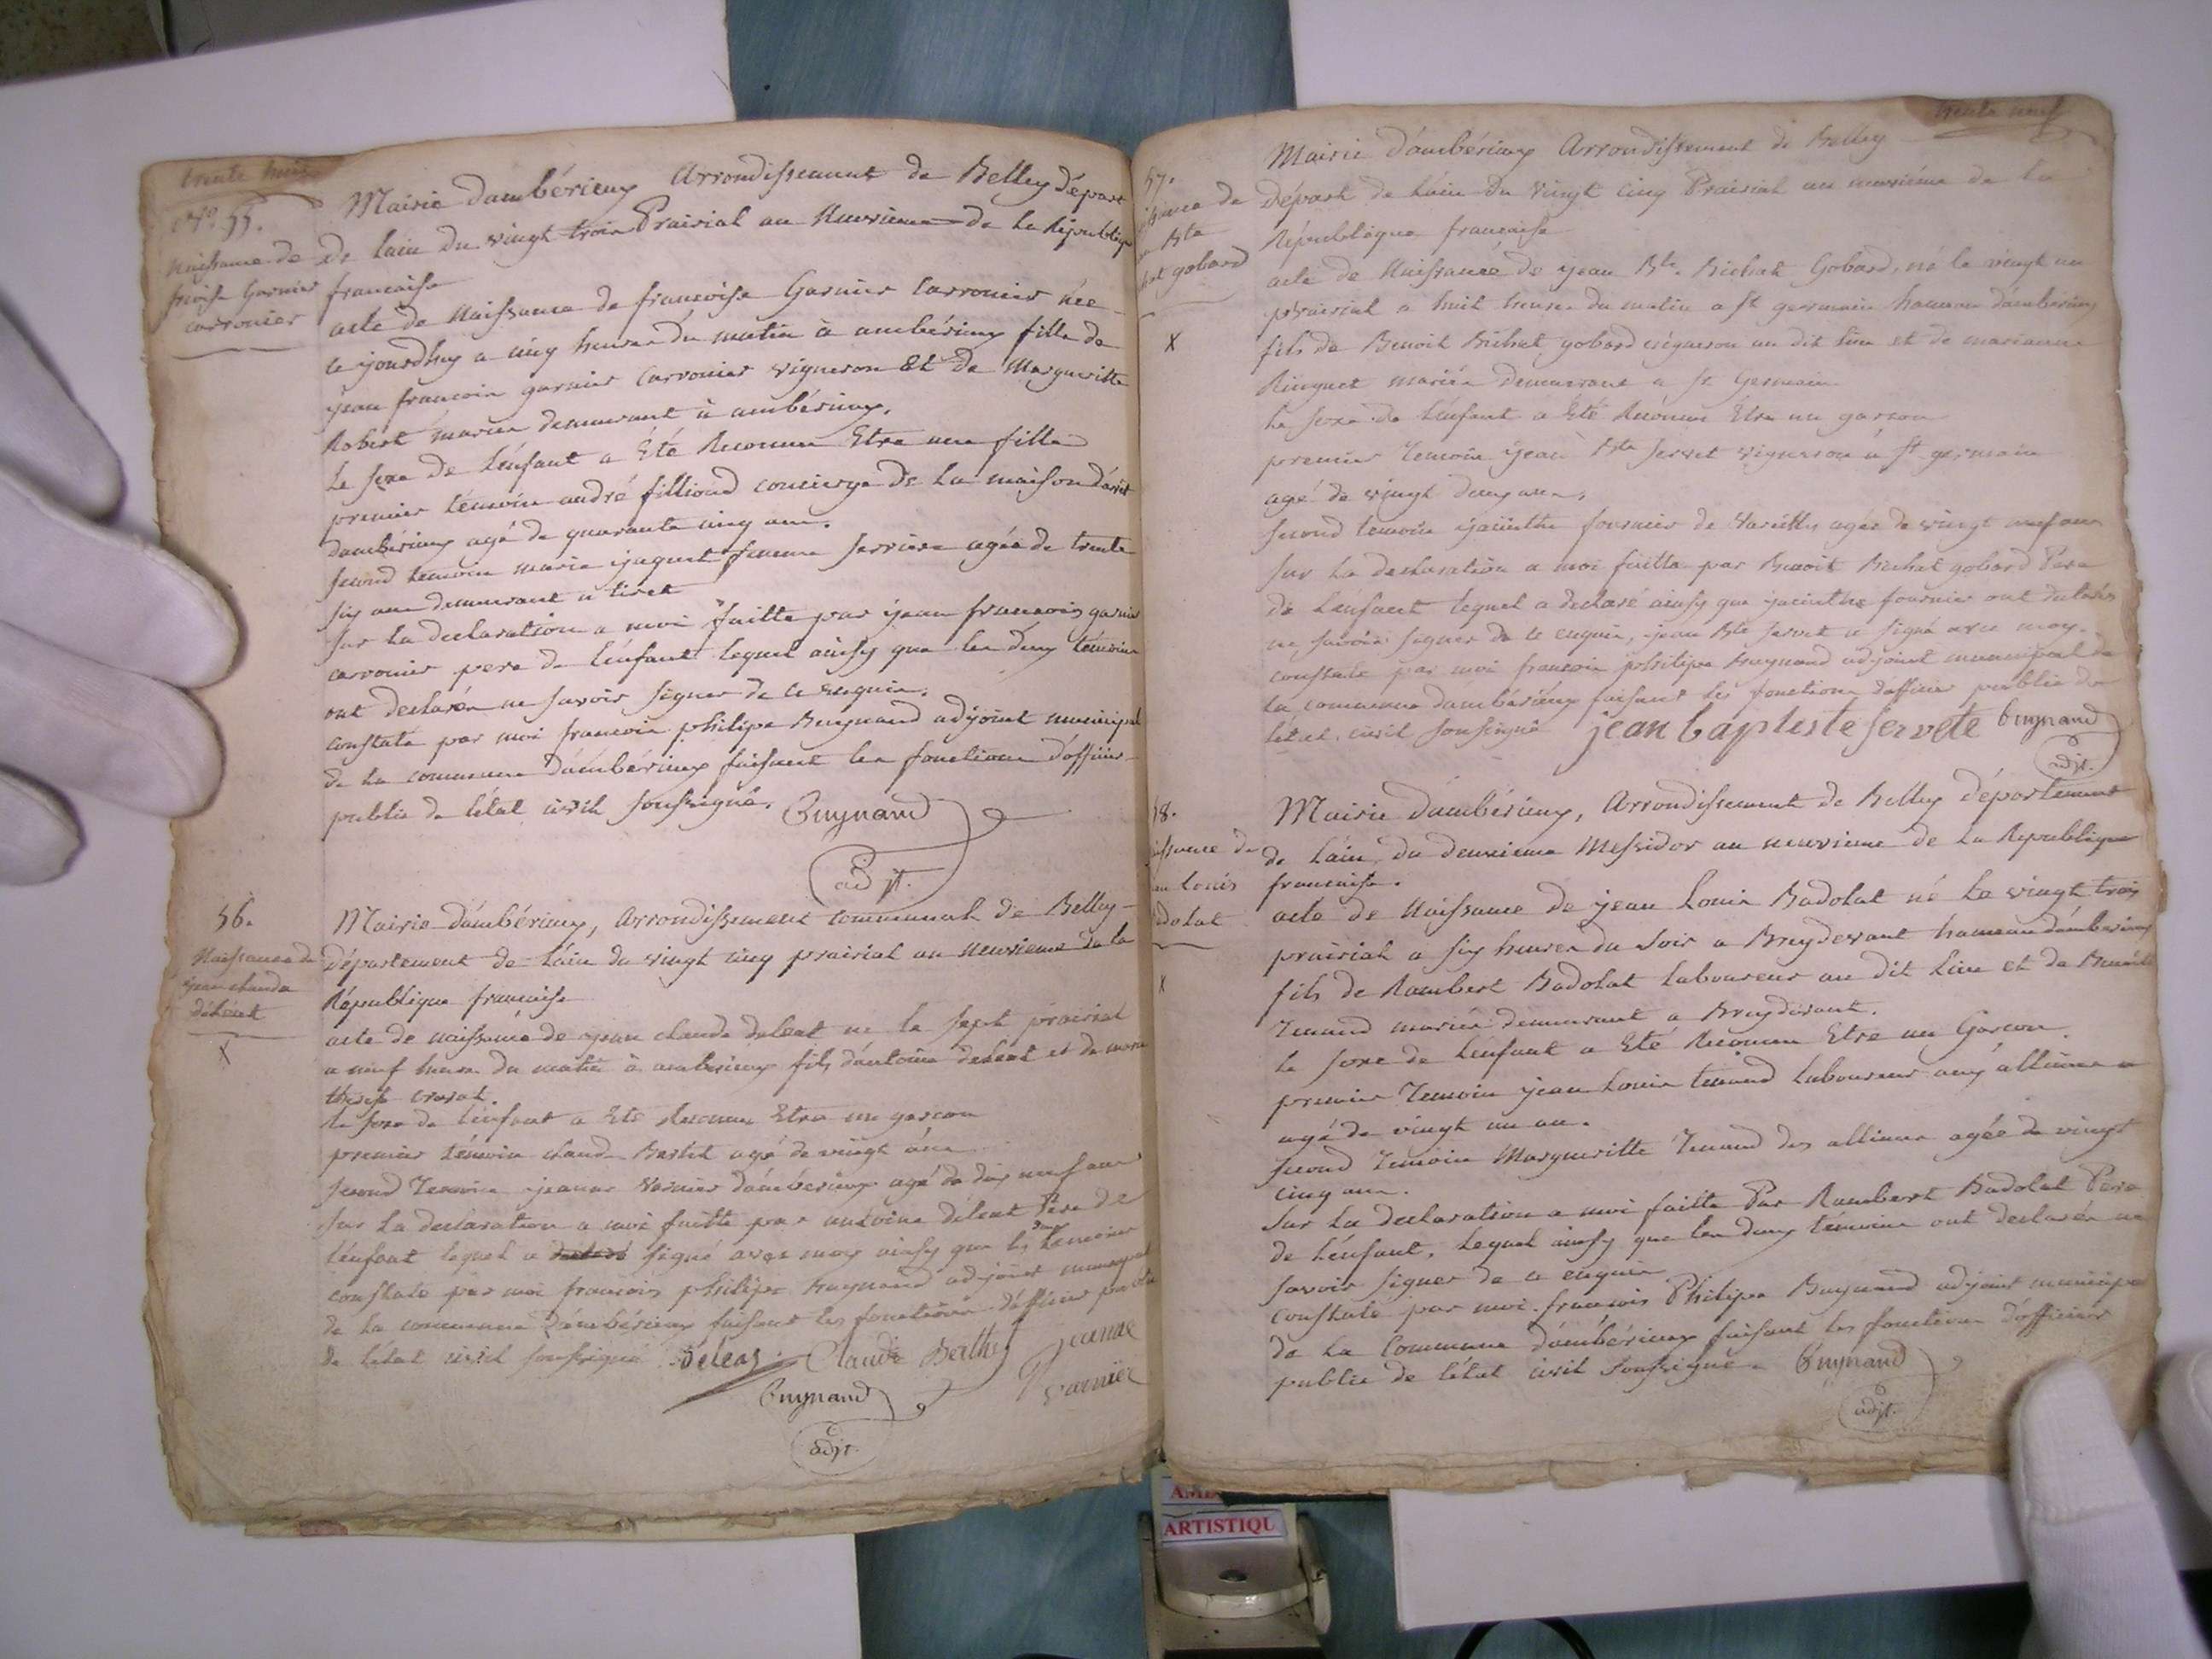 trente huit
N.º 55.
Naissance de
Garnier
carronier
Mairie dambérieux Arrondissement de Belley départ
de lain du vingt trois Prairial an Neuvieme de la République
francaise
acte de Naissance de francoise Garnier Carronier née
ce jourdhuy a cinq heures du matin à ambérieux fille de
jean francois garnier Carronier vigneron Et de Margueritte
Robert mariés demeurant à ambérieux,
Le sexe de lénfant a Eté Reconnu Etre une fille
premier témoin andré fillioud concierge de la maison d'arrêt
dambérieux agé de quarante cinq ans.
second temoin marie jaquet femme serriere agée de trente
six ans demeurant a tiret
sur la declaration a moi faitte par jean francois garnier
carronier pere de lénfant lequel ainsy que les deux témoins
ont declarés ne savoir signer de ce enquis.
constaté par moi francois philipe Buynand adjoint municipal
de la commune dámbérieux faisant les fonctions dofficier
public de létat civil soussigné. Buynand
adjt.
56.
Naissance de
jean claude
déléat
X
Mairie dámbérieux, Arrondissement communal de Belley
département de láin du vingt cinq prairial an neuvieme de la
République francaise
acte de naissance de jean claude deleat né le sept prairial
a neuf heures du matin à ambérieux fils dántoine deleat et de marie
therese
le sexe de lénfant a Eté Reconnu Etre un garcon
premier témoin claude Bertet agé de vingt ans
second Temoin jeanne Varnier dámbérieux agé de dix neuf ans
sur la declaration a moi faitte par antoine déléat Pere de
lénfant lequel a declaré signé avec moy ainsy que les deux témoins
constaté par moi francois philipe buynand adjoint municipal
de la commune dámbérieux faisant les fonctions dófficier public
de létat civil soussigné Deleaz Claude Berthet jeanne
varnier
Buynand
adjt.
trente neuf
57.
de
Bte
gobard
X
Mairie d'ámbérieux Arrondissement de Belley
Départ de Láin du vingt cinq Prairial an neuvième de la
République francaise
acte de Naissance de jean Bte. Bichat Gobard, né le vingt un
prairial a huit heures du matin a st germain hameau dámbérieux
fils de Benoit Bichat gobard vigneron au dit lieu et de marianne
Ringuet mariés demeurant a st Germain
le sexe de Lénfant a Eté Reconnu Etre un garcon
premier Temoin jean Bte servet vigneron à st germain
agé de vingt deux ans.
second temoin jacinthe fournier de Vareilles agée de vingt neuf ans
sur la declaration a moi faitte par Benoit Bichat gobard Pere
de lénfant lequel a declaré ainsy que jacinthe fournier ont déclarés
ne savoir signer de ce enquis, jean Bte servet a signé avec moy.
constaté par moi francois philipe buynand adjoint municipal de
la commune dambérieux faisant les fonctions dófficier public de
létat civil soussigné jean baptiste servete Buynand
adjt.
58.
de
Louis
Mairie dámbérieux, Arrondissement de Belley département
de láin, du deuxieme Messidor an neuvieme de la République
francaise.
acte de Naissance de jean Louis Badolat né Le vingt trois
prairial a six heures du soir a Breydevant hameau dámbérieux
fils de Rambert Badolat laboureur au dit lieu et de Benoite
Tenand mariés demeurant a Breydevant.
X
le sexe de Lénfant a Eté Reconnu Etre un Garcon.
premier Temoin jean Louis tenand laboureur aux allimes
agé de vingt un an.
second Temoin Margueritte Tenand des allimes agée de vingt
cinq ans.
Sur La declaration a moi faitte Par Rambert Badolat Pere
de lénfant, lequel ainsy que les deux témoins ont declarés ne
savoir signer de ce enquis
constaté par moi francois Philipe Buynand adjoint municipal
de La Commune dámbérieux faisant les fonctions dófficier
public de létat civil soussigné. Buynand
adjt.
ARTISTIQU